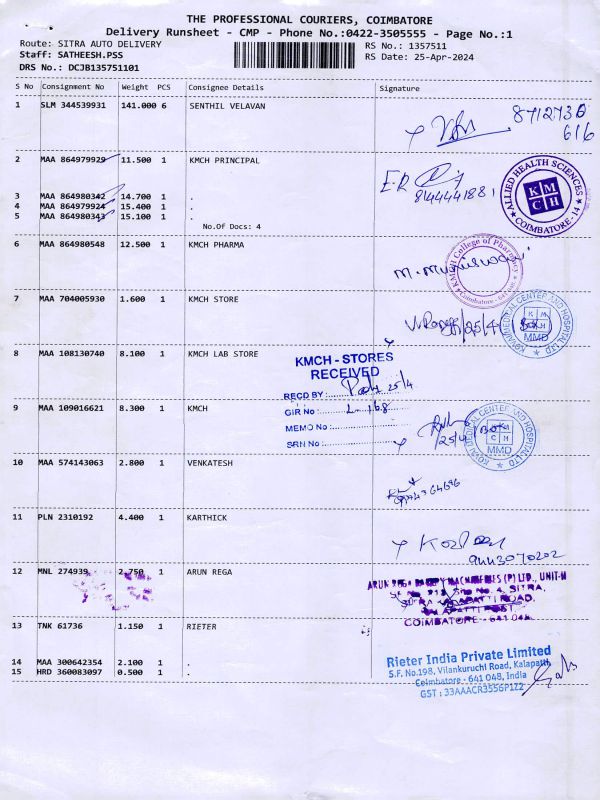 THE PROFESSIONAL COURIERS, COIMBATORE
Delivery Runsheet - CMP - Phone No.:0422-3505555 - Page No.:1
Route: SITRA AUTO DELIVERY
RS No.: 1357511
Staff: SATHEESH.PSS
RS Date: 25-Apr-2024
DRS No.: DCJB135751101
S No Consignment No Weight PCS Consignee Details Signature
1 SLM 344539931 141.000 6 SENTHIL VELAVAN
616
2 MAA 864979929 11.500 1 KMCH PRINCIPAL
8144441881
3 MAA 864980342 14.700 1 .
4 MAA 864979924 15.400 1 .
5 MAA 864980343 15.100 1 .
No.Of Docs: 4
ALLIED HEALTH SCIENCES
KMCH
COIMBATORE - 14
6 MAA 864980548 12.500 1 KMCH PHARMA
KMCH College of Pharmacy
7 MAA 704005930 1.600 1 KMCH STORE
25/4
KOVAI MEDICAL CENTER AND HOSPITAL LTD
KMCH
MMD
8 MAA 108130740 8.100 1 KMCH LAB STORE
KMCH - STORES
RECEIVED
RECD BY: 25/4
GIR No: 168
MEMO No:
SRN No:
9 MAA 109016621 8.300 1 KMCH
25/4
KOVAI MEDICAL CENTER AND HOSPITAL LTD
KMCH
MMD
10 MAA 574143063 2.800 1 VENKATESH
11 PLN 2310192 4.400 1 KARTHICK
9443070202
12 MNL 274939 2.750 1 ARUN REGA
COIMBATORE - 641 04
13 TNK 61736 1.150 1 RIETER
14 MAA 300642354 2.100 1 .
15 HRD 360083097 0.500 1 .
Rieter India Private Limited
S.F. No.198, Vilankuruchi Road, Kalapatti,
Coimbatore - 641 048, India
GST : 33AAACR3556P1Z2